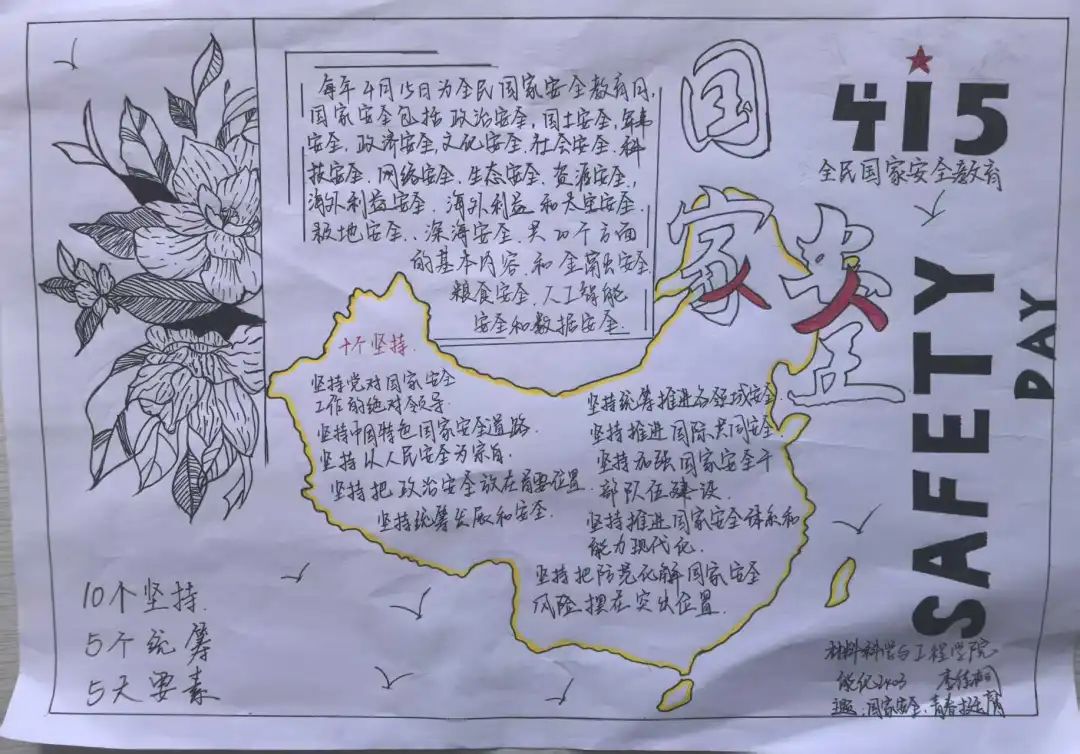 每年4月15日为全民国家安全教育日,
国家安全包括政治安全,国土安全,军事
安全.政济安全,文化安全.社会安全.科
技安全.网络安全.生态安全.资源安全,
海外利益安全.海外利益和太空安全.
极地安全.、深海安全.共20个方面
的基本内容.和金融安全
粮食安全.人工智能
安全和数据安全.
国家安全
415
全民国家安全教育
SAFETY
DAY
十个坚持.
坚持党对国家安全
工作的绝对领导.
坚持中国特色国家安全道路.
坚持以人民安全为宗旨.
坚持把政治安全放在首要位置.
坚持统筹发展和安全.
坚持统筹推进各领域安全
坚持推进国际共同安全.
坚持加强国家安全干
部队伍建设.
坚持推进国家安全体系和
能力现代化.
坚持把防范化解国家安全
风险摆在突出位置.
10个坚持.
5个统筹
5大要素
材料科学与工程学院
能化2403 李佳
国家安全.青春挺膺